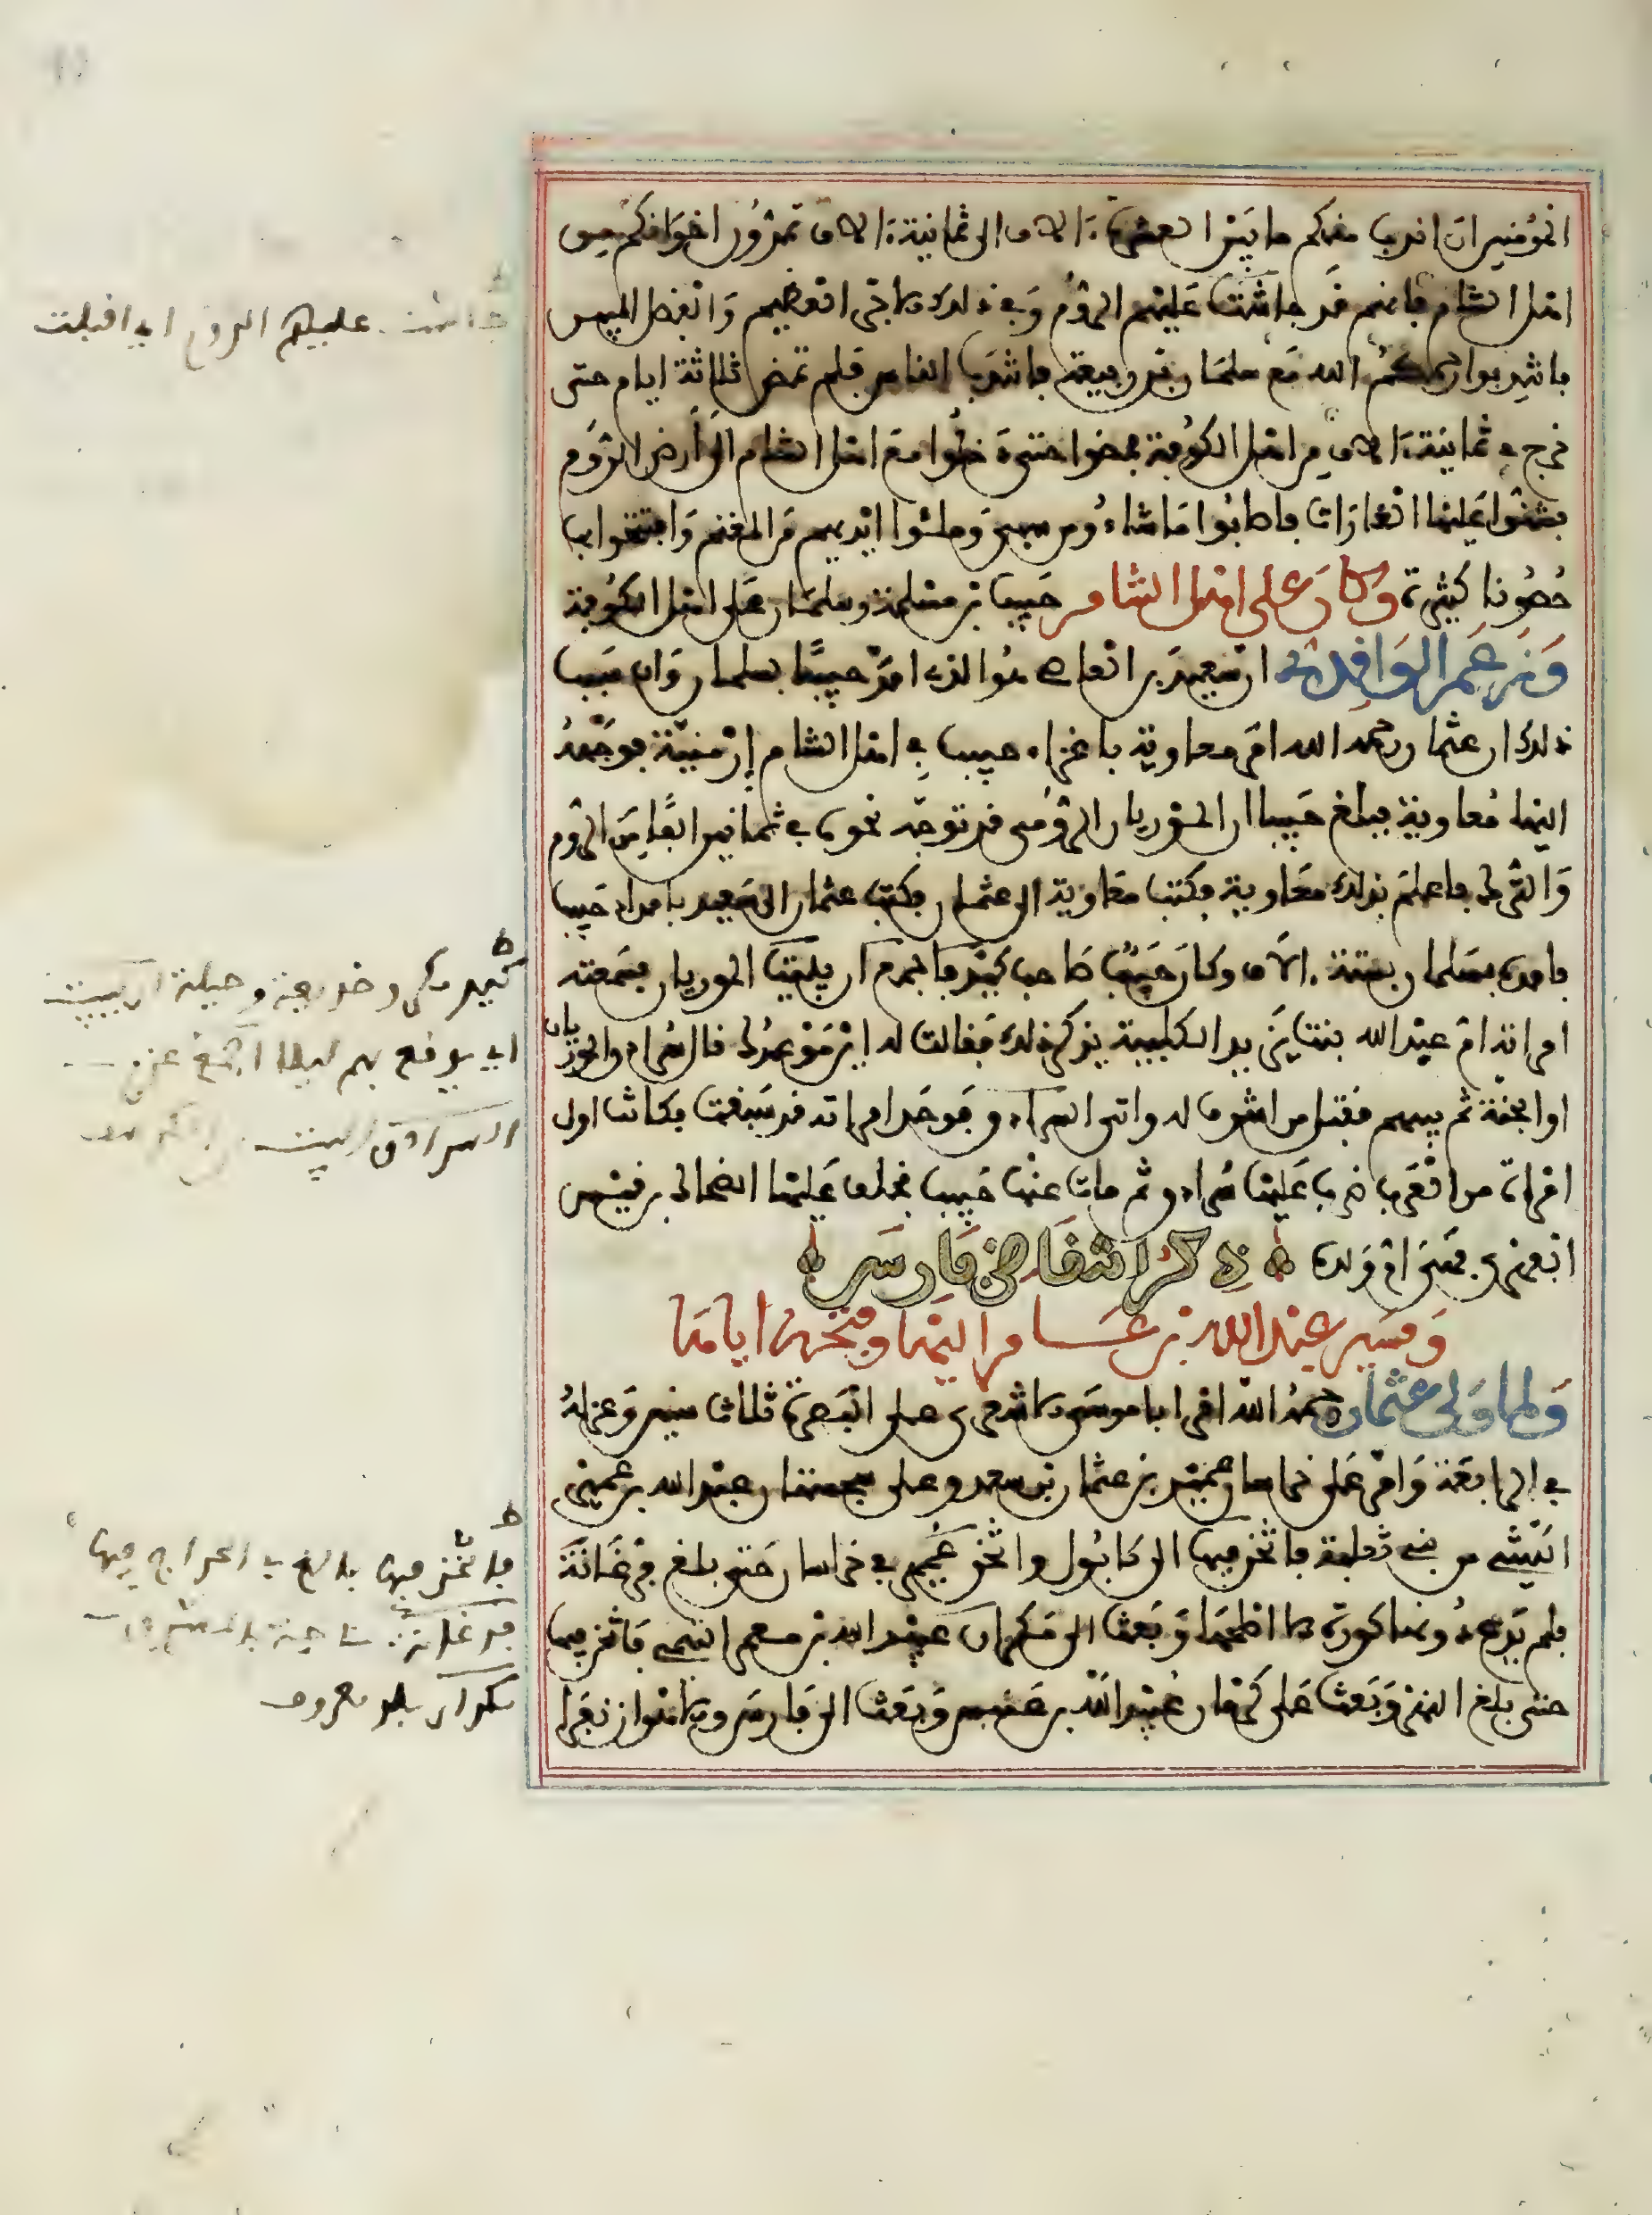 المؤمنين ان اندب منكم ما بين العشرة الاف الى ثمانية الاف تمدون اخوانكم من
اهل الشام فانهم قد جاشت عليهم الروم وفي ذلك الاجر العظيم والفضل المبين
فانتدبوا رحمكم الله مع سلمان بن ربيعة فانتدب الناس فلم تمض ثلاثة ايام حتى
خرج في ثمانية الاف من اهل الكوفة فمضوا حتى دخلوا مع اهل الشام الى أرض الروم
فشنوا عليها الغارات فاصابوا ما شاءوا من سبي وملئوا ايديهم من المغنم وافتتحوا بها
حصونا كثيرة وكان على اهل الشام حبيب بن مسلمة وسلمان على اهل الكوفة
وزعم الواقدي ان سعيد بن العاصي هو الذي امد حبيبا بسلمان وان سبب
ذلك ان عثمان رحمه الله امر معاوية باغزاء حبيب في اهل الشام إرمنية فوجهه
اليها معاوية فبلغ حبيبا ان الموريان الرومي قد توجه نحوه في ثمانين الفا من الروم
والترك فاعلم بذلك معاوية فكتب معاوية الى عثمان فكتب عثمان الى سعيد بامداد حبيب
فامده بسلمان بستة الاف وكان حبيب صاحب كيد فاجمع ان يبيت الموريان فسمعته
امراته ام عبد الله بنت يزيد الكلبية يذكر ذلك فقالت له اين موعدك قال سرادق الموريان
او الجنة ثم بيتهم فقتل من اشرف له واتى السرادق فوجد امراته قد سبقت فكانت اول
امراة من العرب ضرب عليها سرادق ثم مات عنها حبيب فخلف عليها الضحاك بن قيس
الفهري فهي ام ولده ذكر انتقاض فارس
ومسير عبد الله بن عامر اليها وفتحه اياها
ولما ولى عثمان رحمه الله اقر ابا موسى الاشعري على البصرة ثلاث سنين وعزله
في الرابعة وامر على خراسان عمير بن عثمان بن سعد وعلى سجستان عبد الله بن عمير
الليثي من بني ثعلبة فاثخن فيها الى كابول واثخن عمير في خراسان حتى بلغ فرغانة
فلم يدع دونها كورة الا اصلحها وبعث الى مكران عبيد الله بن معمر التيمي فاثخن فيها
حتى بلغ النهر وبعث على كرمان عبد الرحمن بن عبيس وبعث الى فارس والاهواز نفرا
جاشت عليهم الروم اي اقبلت
ط
كيد مكر وخديعة وحيلة ان يبيت
اي يوقع بهم ليلا اجمع عزم
السرادق البيت
ط
فاثخن فيها بالغ في الجراح فيها
فرغانة ناحية بالمشرق
مكران بلد معروف